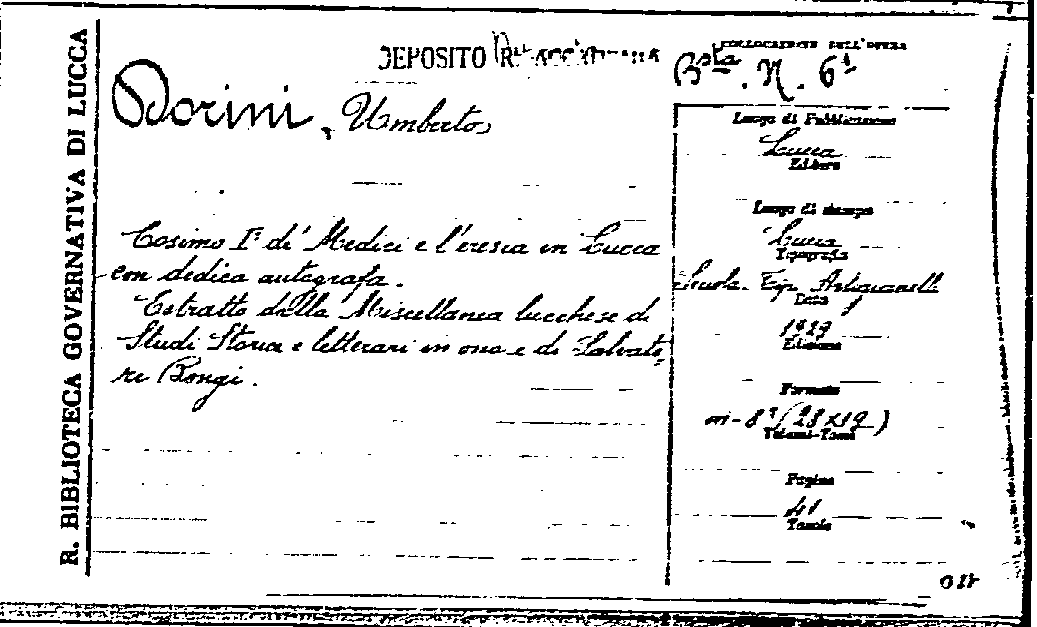 R. BIBLIOTECA GOVERNATIVA DI LUCCA
DEPOSITO R.
COLLOCAZIONE DELL'OPERA
Bsta. N. 61
Dorini, Umberto
Cosimo I° di' Medici e l'eresia in Lucca
con dedica autografa.
Estratto dalla Miscellanea lucchese di
Studi Storici e letterari in onore di Salvato-
re Bongi.
Luogo di Pubblicazione
Lucca
Editore
Luogo di stampa
Lucca
Tipografia
Scuola Tip. Artigianelli
Data
Edizione
Formato
in-8° (28x19)
Volumi-Tomi
Pagine
41
Tavole